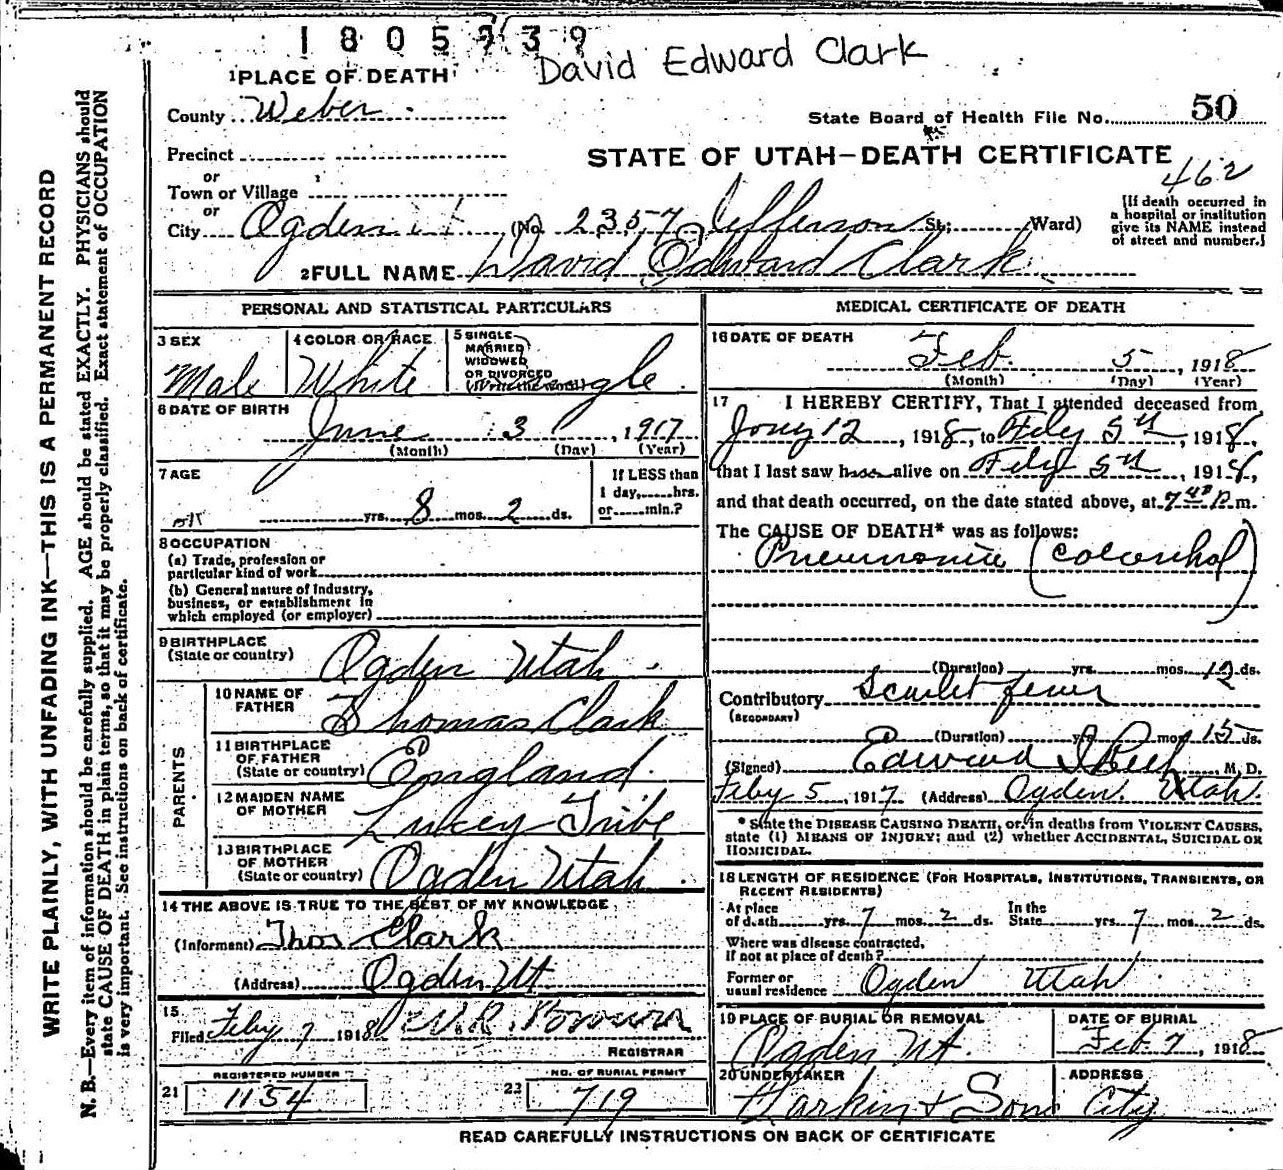 1805739
David Edward Clark
1 PLACE OF DEATH
County Weber
State Board of Health File No. 50
Precinct
or
Town or Village
or
STATE OF UTAH—DEATH CERTIFICATE
462
City Ogden Ut (No. 2357 Jefferson St; Ward)
[If death occurred in
a hospital or institution
give its NAME instead
of street and number.]
2 FULL NAME David Edward Clark
WRITE PLAINLY, WITH UNFADING INK—THIS IS A PERMANENT RECORD
N. B.—Every item of information should be carefully supplied. AGE should be stated EXACTLY. PHYSICIANS should
state CAUSE OF DEATH in plain terms, so that it may be properly classified. Exact statement of OCCUPATION
is very important. See instructions on back of certificate.
PERSONAL AND STATISTICAL PARTICULARS
3 SEX
Male
4 COLOR OR RACE
White
5 SINGLE
MARRIED
WIDOWED
OR DIVORCED
(Write the word)
6 DATE OF BIRTH
June 3, 1917
(Month) (Day) (Year)
7 AGE
yrs. 8 mos. 2 ds.
If LESS than
1 day, hrs.
or min.?
8 OCCUPATION
(a) Trade, profession or
particular kind of work
(b) General nature of Industry,
business, or establishment in
which employed (or employer)
9 BIRTHPLACE
(State or country) Ogden Utah
PARENTS
10 NAME OF
FATHER Thomas Clark
11 BIRTHPLACE
OF FATHER
(State or country) England
12 MAIDEN NAME
OF MOTHER Lucy Tribe
13 BIRTHPLACE
OF MOTHER
(State or country) Ogden Utah
14 THE ABOVE IS TRUE TO THE BEST OF MY KNOWLEDGE
(Informant) Thos Clark
(Address) Ogden Ut
15
Filed Feby 7 1918 W.R. Brown
REGISTRAR
21 REGISTERED NUMBER
1154
22 NO. OF BURIAL PERMIT
719
MEDICAL CERTIFICATE OF DEATH
16 DATE OF DEATH
Feb. 5, 1918
(Month) (Day) (Year)
17 I HEREBY CERTIFY, That I attended deceased from
Jany 12, 1918, to Feby 5th, 1918,
that I last saw h alive on Feby 5th, 1918,
and that death occurred, on the date stated above, at m.
The CAUSE OF DEATH* was as follows:
Pneumonia
(Duration) yrs. mos. 12 ds.
Contributory Scarlet fever
(SECONDARY)
(Duration) yrs. mos. 15 ds.
(Signed) Edward I Rich, M. D.
Feby 5, 1917 (Address) Ogden Utah
* State the DISEASE CAUSING DEATH, or, in deaths from VIOLENT CAUSES,
state (1) MEANS OF INJURY; and (2) whether ACCIDENTAL, SUICIDAL OR
HOMICIDAL.
18 LENGTH OF RESIDENCE (FOR HOSPITALS, INSTITUTIONS, TRANSIENTS, OR
RECENT RESIDENTS)
At place
of death yrs. 7 mos. 2 ds. In the
State yrs. 7 mos. 2 ds.
Where was disease contracted,
If not at place of death?
Former or
usual residence Ogden Utah
19 PLACE OF BURIAL OR REMOVAL
Ogden Ut.
DATE OF BURIAL
Feb 7, 1918
20 UNDERTAKER
Larkin & Sons
ADDRESS
City
READ CAREFULLY INSTRUCTIONS ON BACK OF CERTIFICATE